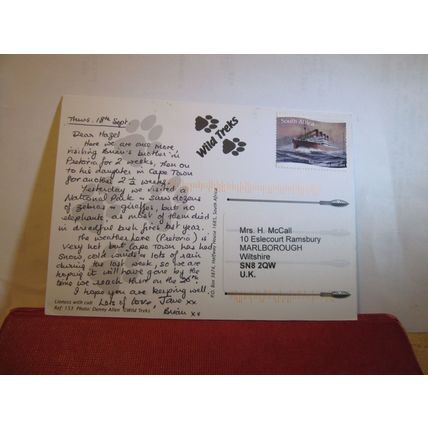 Thurs. 18th Sept.
Dear Hazel
Here we are once more
visiting Brian's brother in
Pretoria for 2 weeks, then on
to his daughter in Cape Town
for another 2½ weeks.
Yesterday we visited a
National Park – saw dozens
of zebras – giraffes, but no
elephants as most of them died
in dreadful bush fires last year.
The weather here (Pretoria) is
very hot but Cape Town has had
snow, cold winds & lots of rain
during the last week, so we are
hoping it will have gone by the
time we reach there on the 28th
I hope you are keeping well.
Lots of love, Jane xx
Brian xx
Lioness with cub
Ref 153 Photo: Danny Allen ©Wild Treks
Wild Treks
P.O. Box 3874, Halfway House 1685, South Africa
South Africa
Mrs. H. McCall
10 Eslecourt Ramsbury
MARLBOROUGH
Wiltshire
SN8 2QW
U.K.